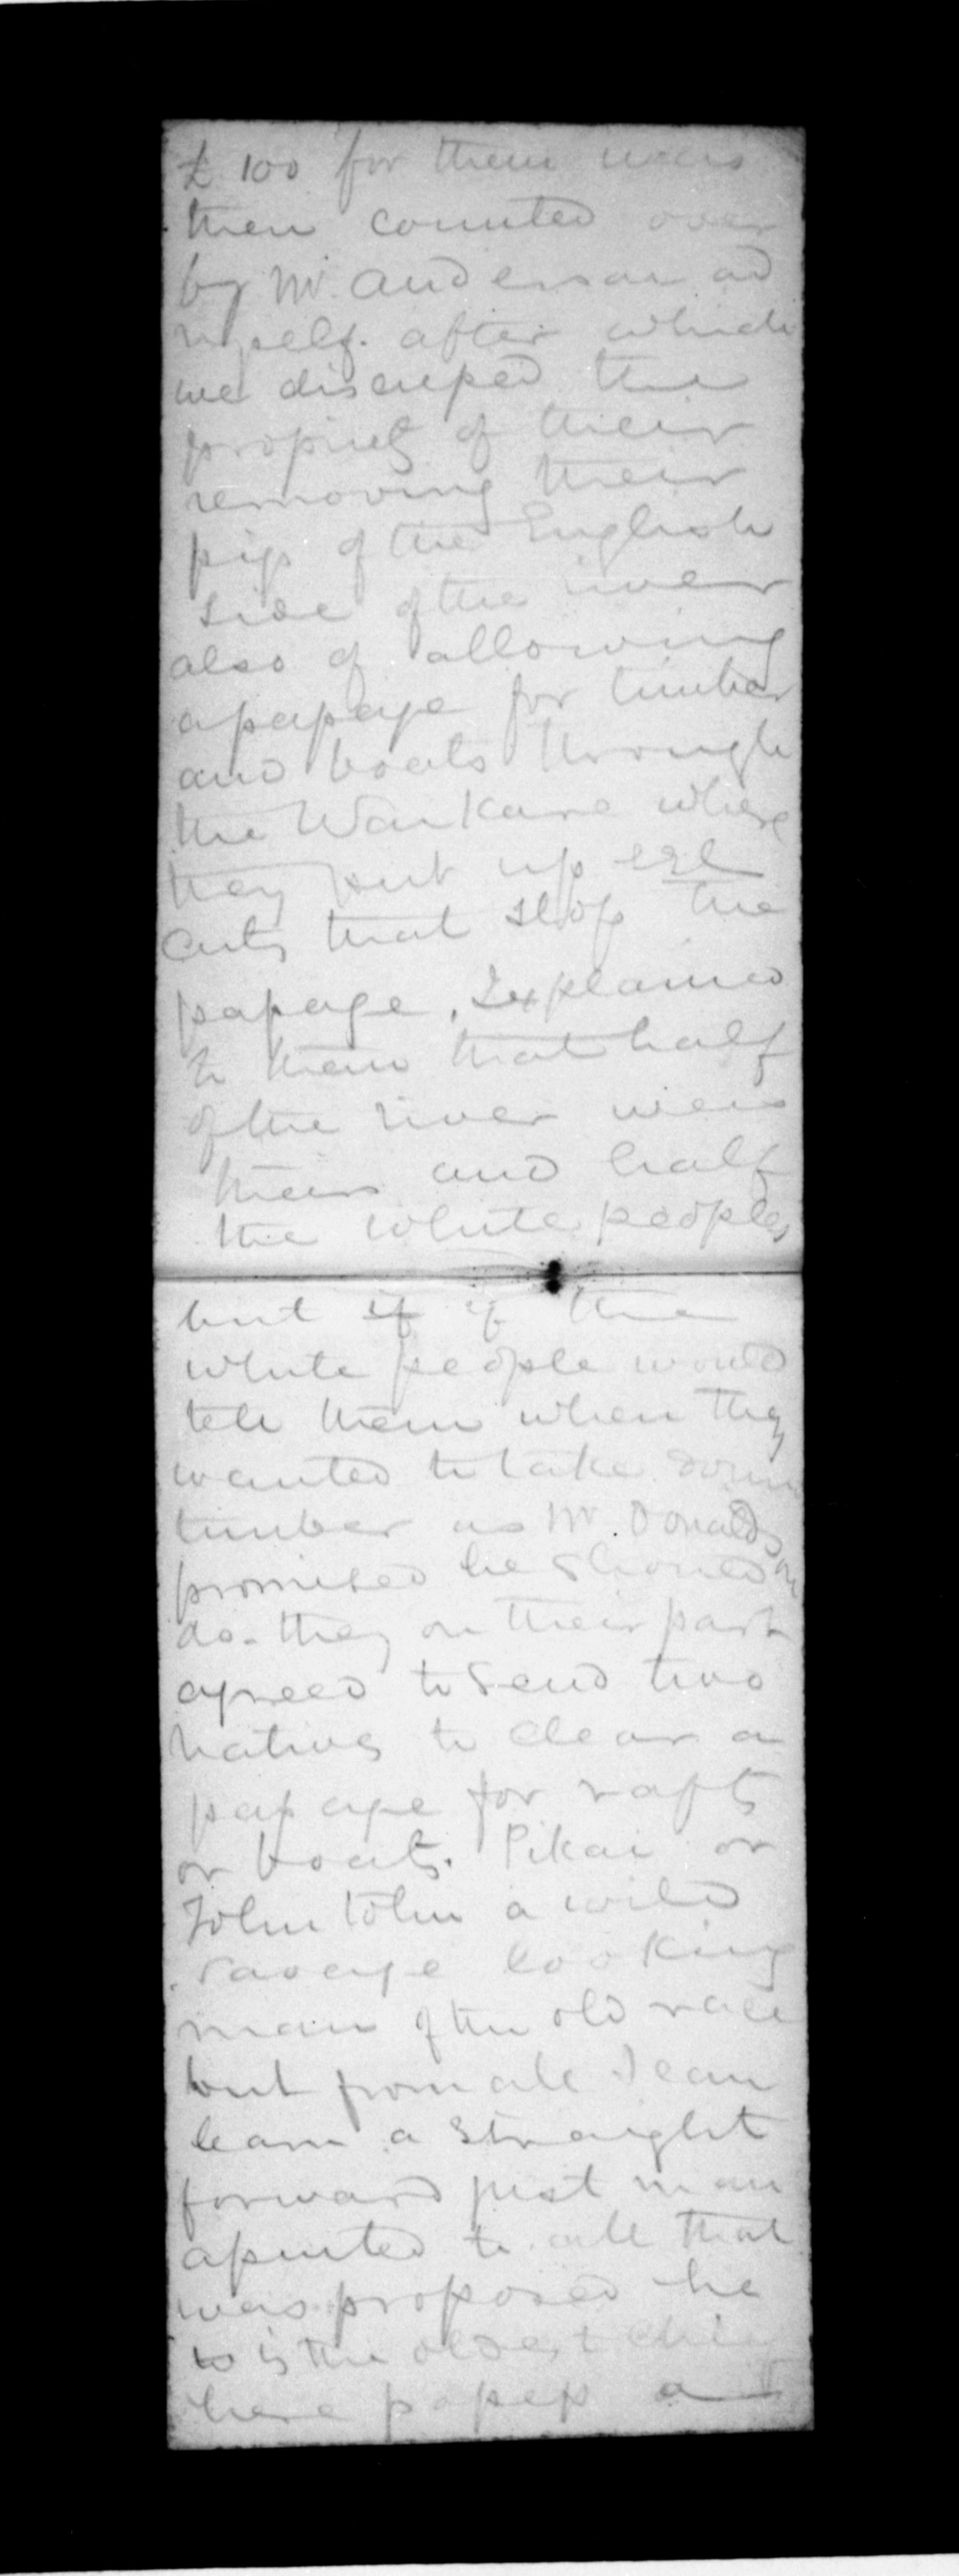 £ 100 for them was
then counted over
by Mr. Anderson and
myself. after which
we discussed the
propriety of their
removing their
pigs of the English
side of the river
also of allowing
a passage for timber
and boats through
the Waikare where
they put up eel
cuts that stop the
passage, I explained
to them that half
of the river was
theirs and half
the white peoples
but if if the
white people would
tell them when they
wanted to take down
timber as Mr. Donaldson
promised he should
do. they on their part
agreed to send two
natives to clear a
passage for rafts
or boats. Pikai or
a wild
savage looking
man of the old race
but from all I can
learn a straight
forward just man
assented to all that
was proposed he
is the oldest chief
here possess